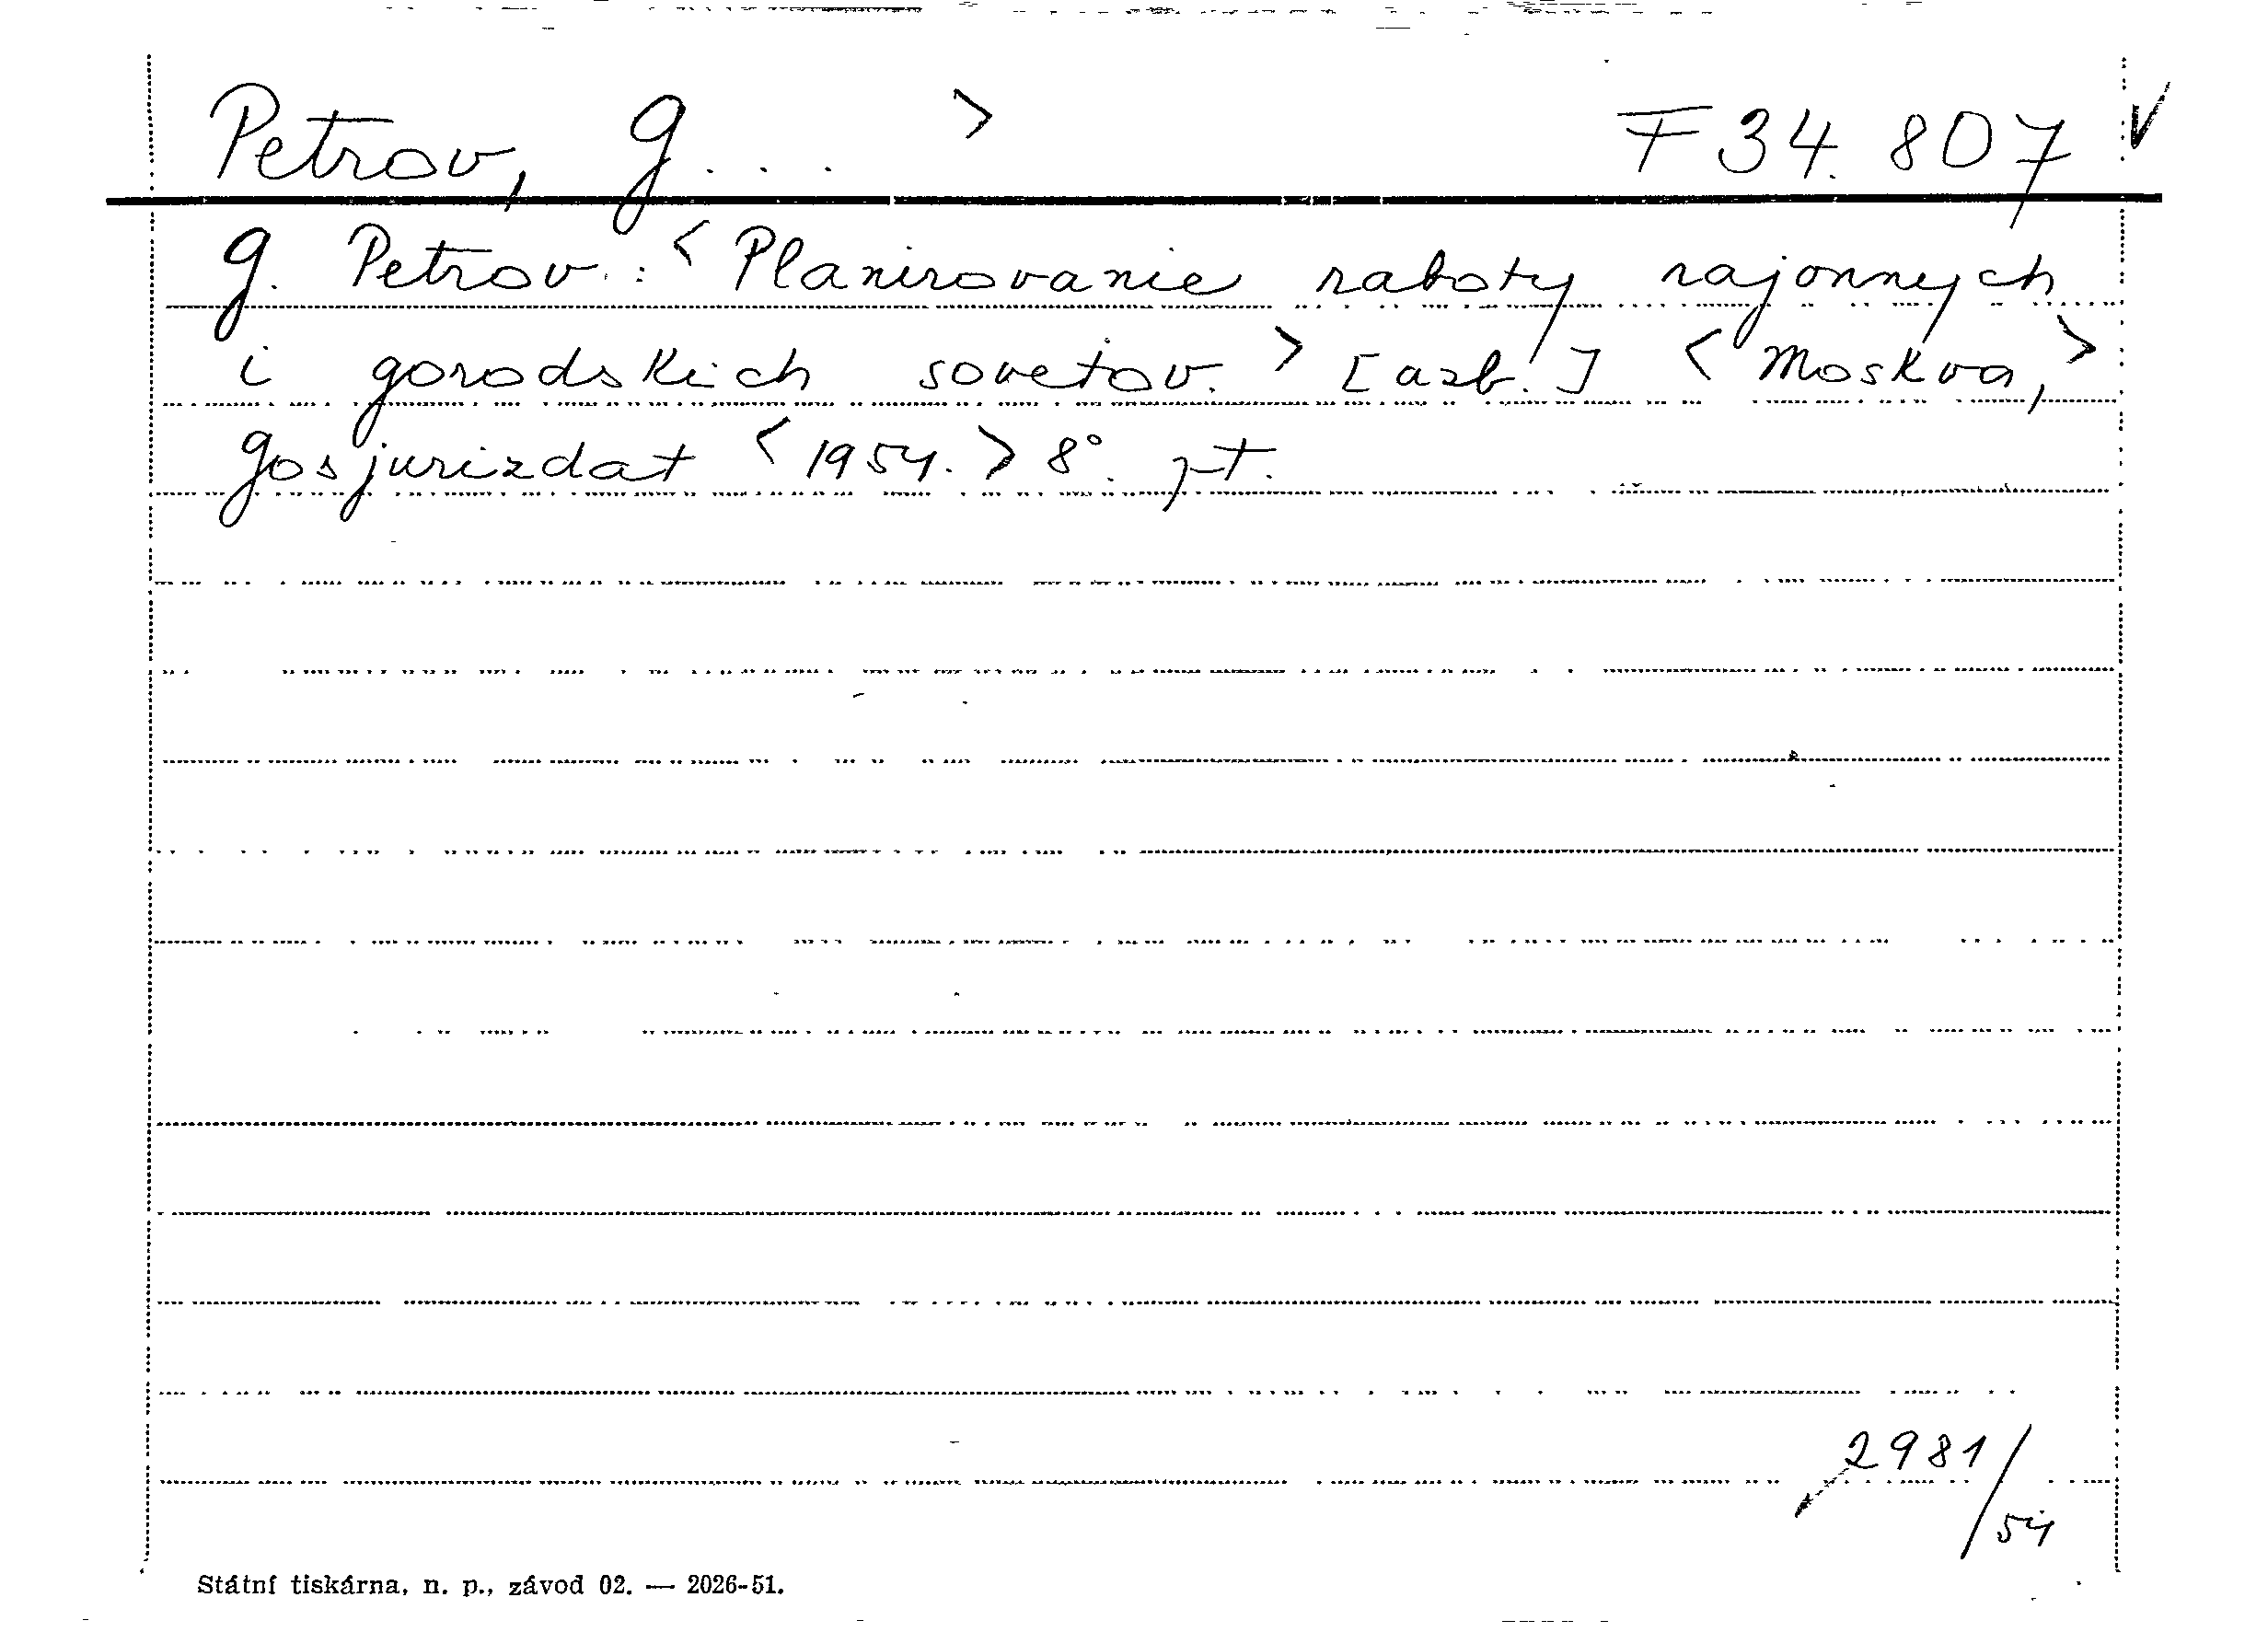 Petrov, G... > F 34.807 V
G. Petrov: < Planirovanie raboty rajonnych
i gorodskich sovetov. > [azb.] < Moskva, >
Gosjurizdat < 1954. > 8°. pt.
2981/54
Státní tiskárna, n. p., závod 02. — 2026-51.